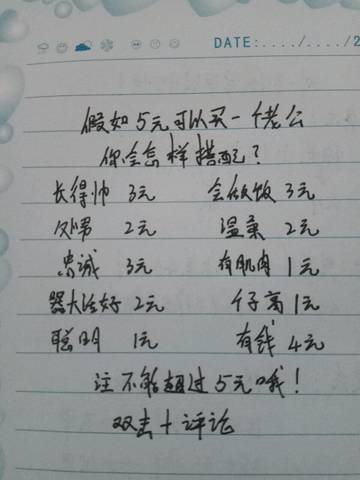 DATE:..../..../2
假如5元可以买一个老公
你会怎样搭配?
长得帅 3元 会做饭 3元
处男 2元 温柔 2元
忠诚 3元 有肌肉 1元
器大活好 2元 个子高 1元
聪明 1元 有钱 4元
注 不能超过5元哦!
双击+评论